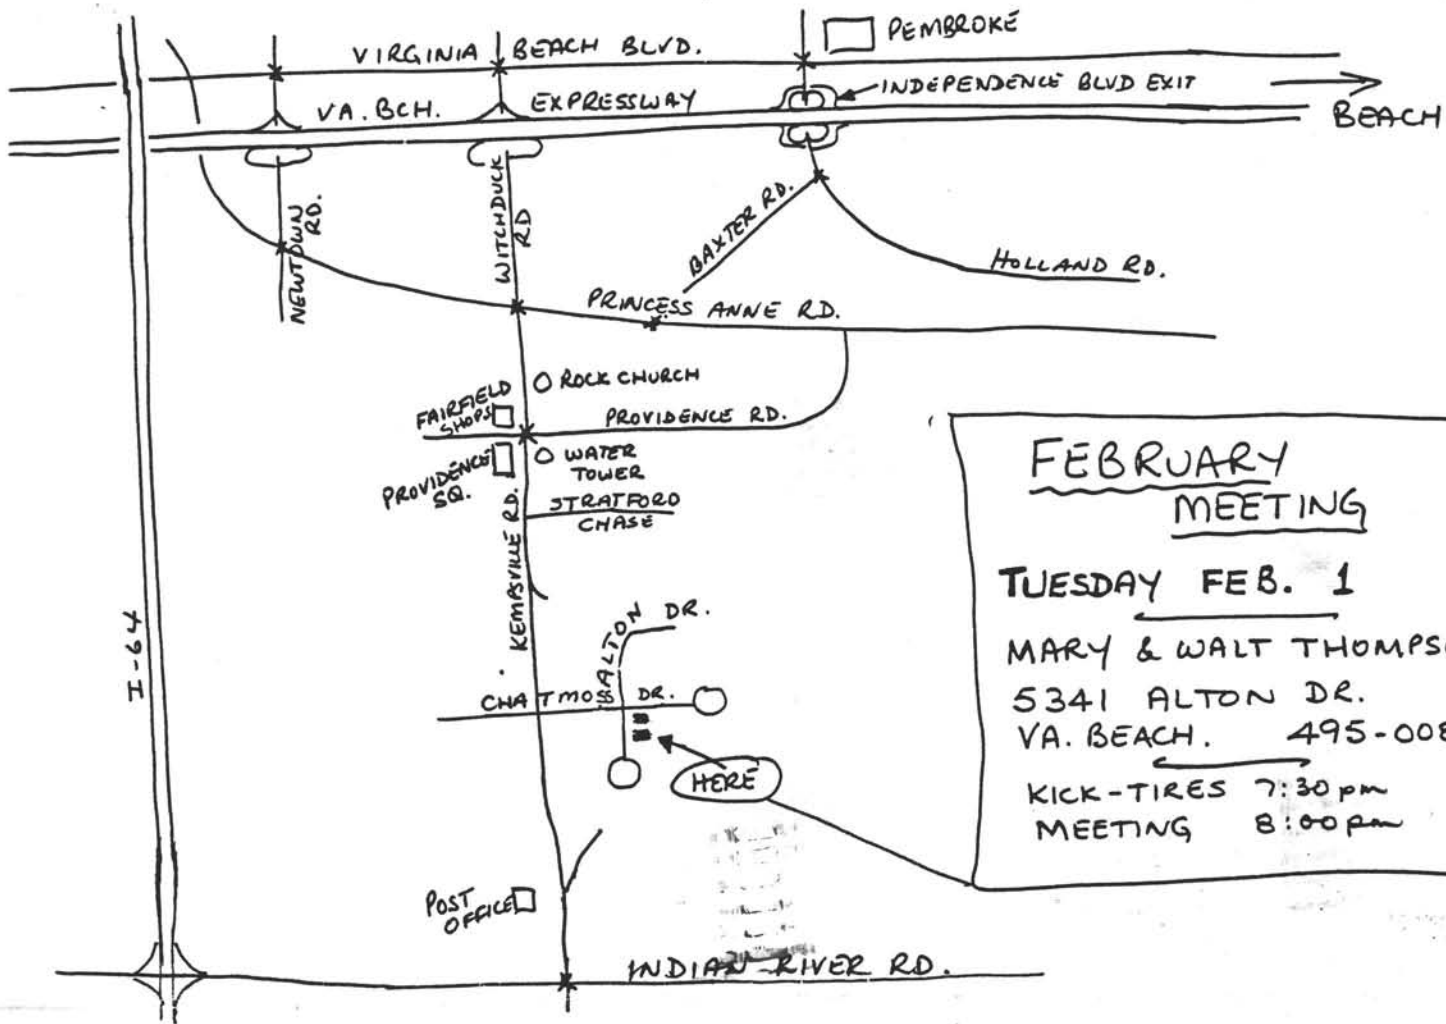 PEMBROKE
VIRGINIA BEACH BLVD.
INDEPENDENCE BLVD EXIT
VA. BCH. EXPRESSWAY
BEACH
NEWTOWN
RD.
WITCHDUCK
RD
BAXTER RD.
HOLLAND RD.
PRINCESS ANNE RD.
ROCK CHURCH
FAIRFIELD
SHOPS
PROVIDENCE RD.
PROVIDENCE
SQ.
WATER
TOWER
STRATFORD
CHASE
KEMPSVILLE RD.
I-64
ALTON DR.
CHATMOSS DR.
HERE
POST
OFFICE
INDIAN RIVER RD.
FEBRUARY
MEETING
TUESDAY FEB. 1
MARY & WALT
5341 ALTON DR.
VA. BEACH. 495-008
KICK-TIRES 7:30 pm
MEETING 8:00 pm